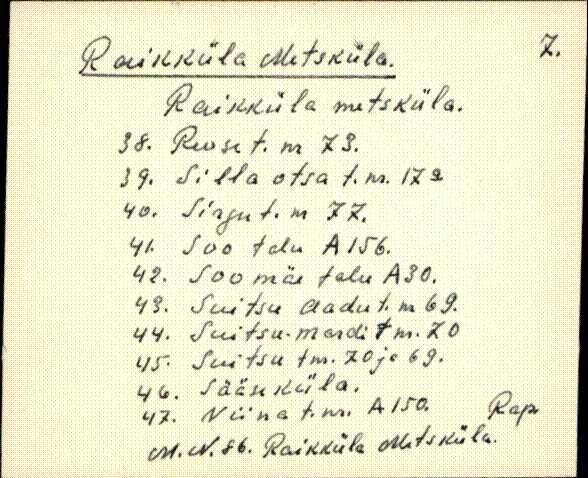 Raikküla Metsküla. 7.
Raikküla metsküla.
38. Reose t. nr 73.
39. Silla otsa t. nr. 17a
40. Sirgu t. nr 77.
41. Soo talu A156.
42. Soo mäe talu A30.
43. Suitsu Aadu t. nr 69.
44. Suitsu-mardi t nr. 70
45. Suitsu t nr. 70 ja 69.
46. Sääseküla.
47. Viina t. nr. A150. Rap.
M. N. 86. Raikküla Metsküla.